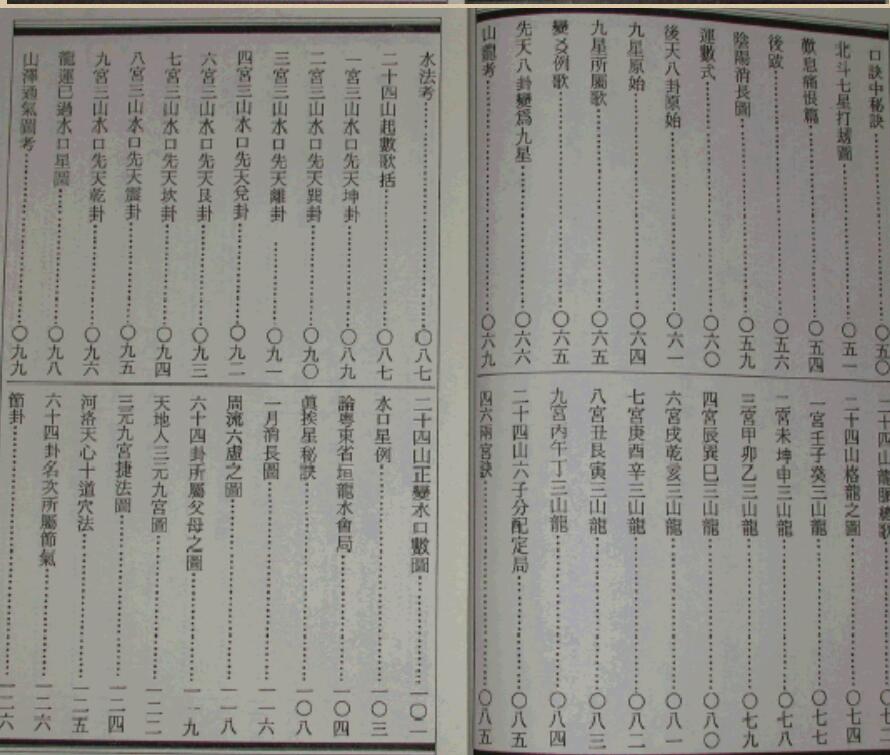 口訣中秘訣⋯⋯〇五〇
北斗七星打刼圖⋯⋯〇五一
歎息痛恨篇⋯⋯〇五四
後跋⋯⋯〇五六
陰陽消長圖⋯⋯〇五九
運數式⋯⋯〇六〇
後天八卦原始⋯⋯〇六一
九星原始⋯⋯〇六四
九星所屬歌⋯⋯〇六五
變爻例歌⋯⋯〇六五
先天八卦變爲九星⋯⋯〇六六
山龍考⋯⋯〇六九
二十四山龍脈總歌⋯⋯〇七
二十四山格龍之圖⋯⋯〇七四
一宮壬子癸三山龍⋯⋯〇七七
二宮未坤申三山龍⋯⋯〇七八
三宮甲卯乙三山龍⋯⋯〇七九
四宮辰巽巳三山龍⋯⋯〇八〇
六宮戌乾亥三山龍⋯⋯〇八一
七宮庚酉辛三山龍⋯⋯〇八二
八宮丑艮寅三山龍⋯⋯〇八三
九宮丙午丁三山龍⋯⋯〇八四
二十四山六子分配定局⋯⋯〇八五
四六兩宮訣⋯⋯〇八五
水法考⋯⋯〇八七
二十四山起數歌括⋯⋯〇八七
一宮三山水口先天坤卦⋯⋯〇八九
二宮三山水口先天巽卦⋯⋯〇九〇
三宮三山水口先天離卦⋯⋯〇九一
四宮三山水口先天兌卦⋯⋯〇九二
六宮三山水口先天艮卦⋯⋯〇九三
七宮三山水口先天坎卦⋯⋯〇九四
八宮三山水口先天震卦⋯⋯〇九五
九宮三山水口先天乾卦⋯⋯〇九六
龍運已過水口星圖⋯⋯〇九八
山澤通氣圖考⋯⋯〇九九
二十四山正變水口數圖⋯⋯一〇一
水口星例⋯⋯一〇三
論粵東省垣龍水會局⋯⋯一〇四
眞挨星秘訣⋯⋯一〇八
一月消長圖⋯⋯一一六
周流六虛之圖⋯⋯一一八
六十四卦所屬父母之圖⋯⋯一一九
天地人三元九宮圖⋯⋯一二二
三元九宮捷法圖⋯⋯一二四
河洛天心十道穴法⋯⋯一二五
六十四卦名次所屬節氣⋯⋯一二六
節卦⋯⋯一二六